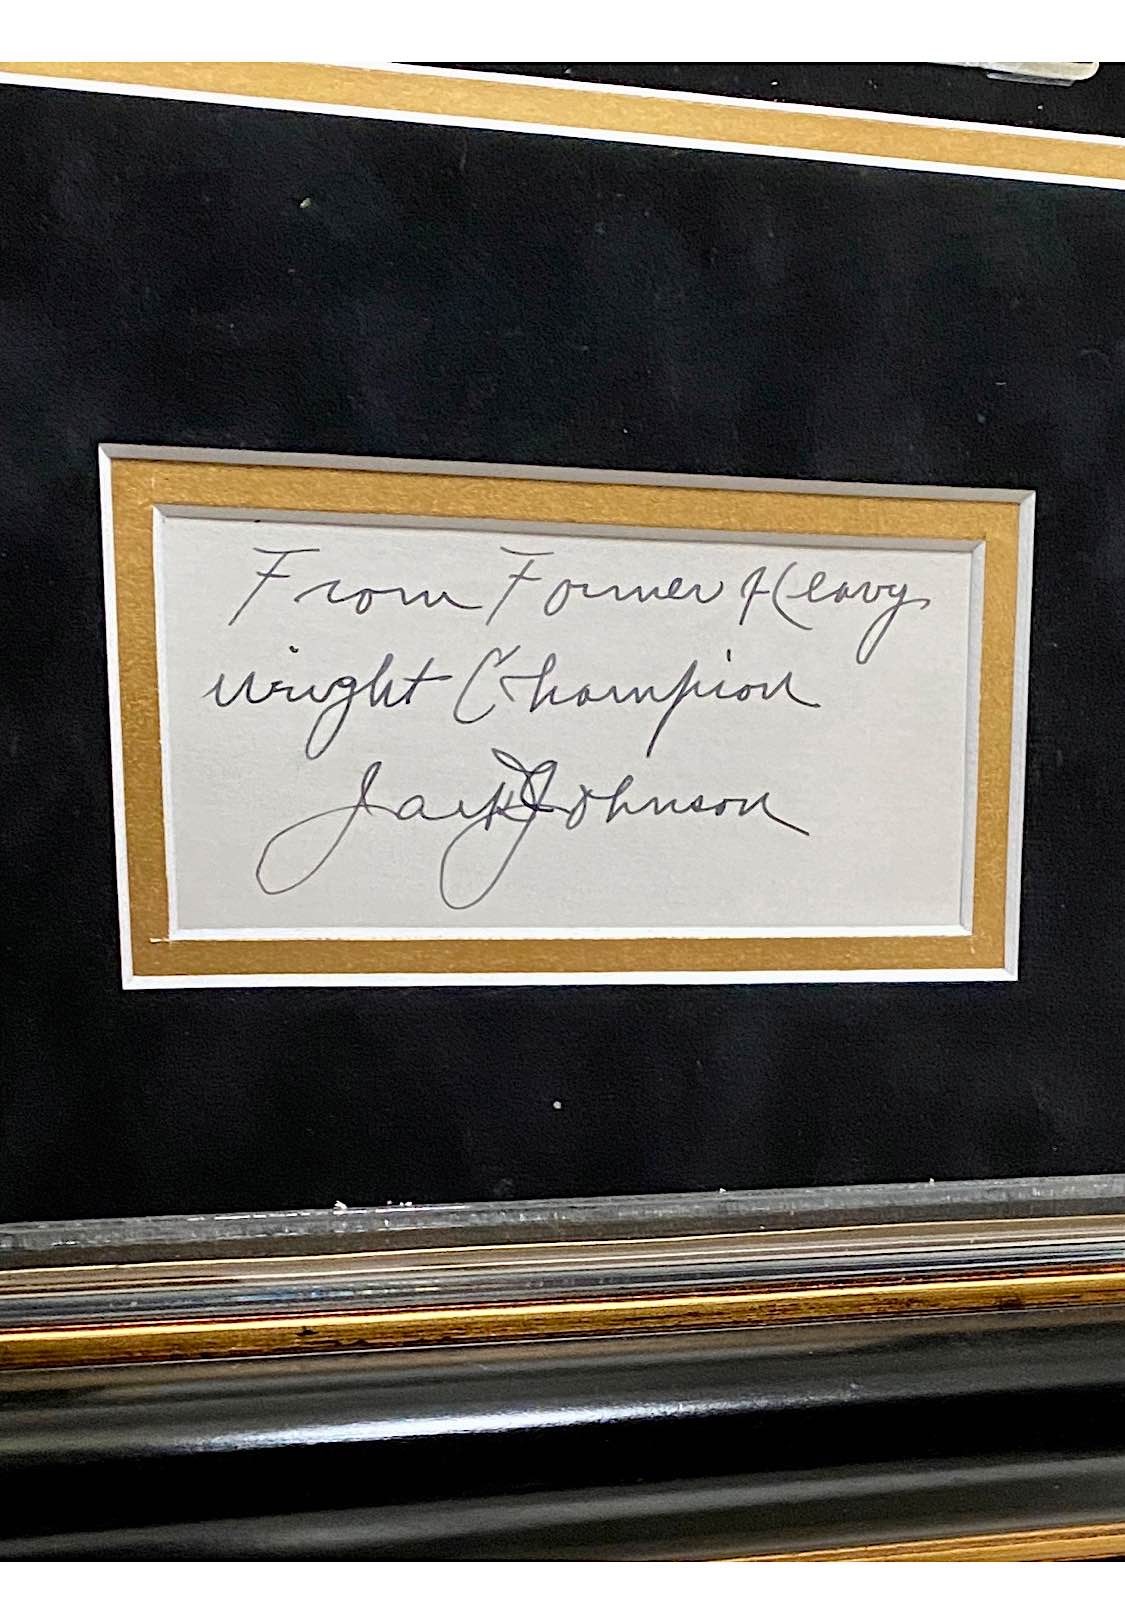 From Former Heavy
weight Champion
Jack Johnson